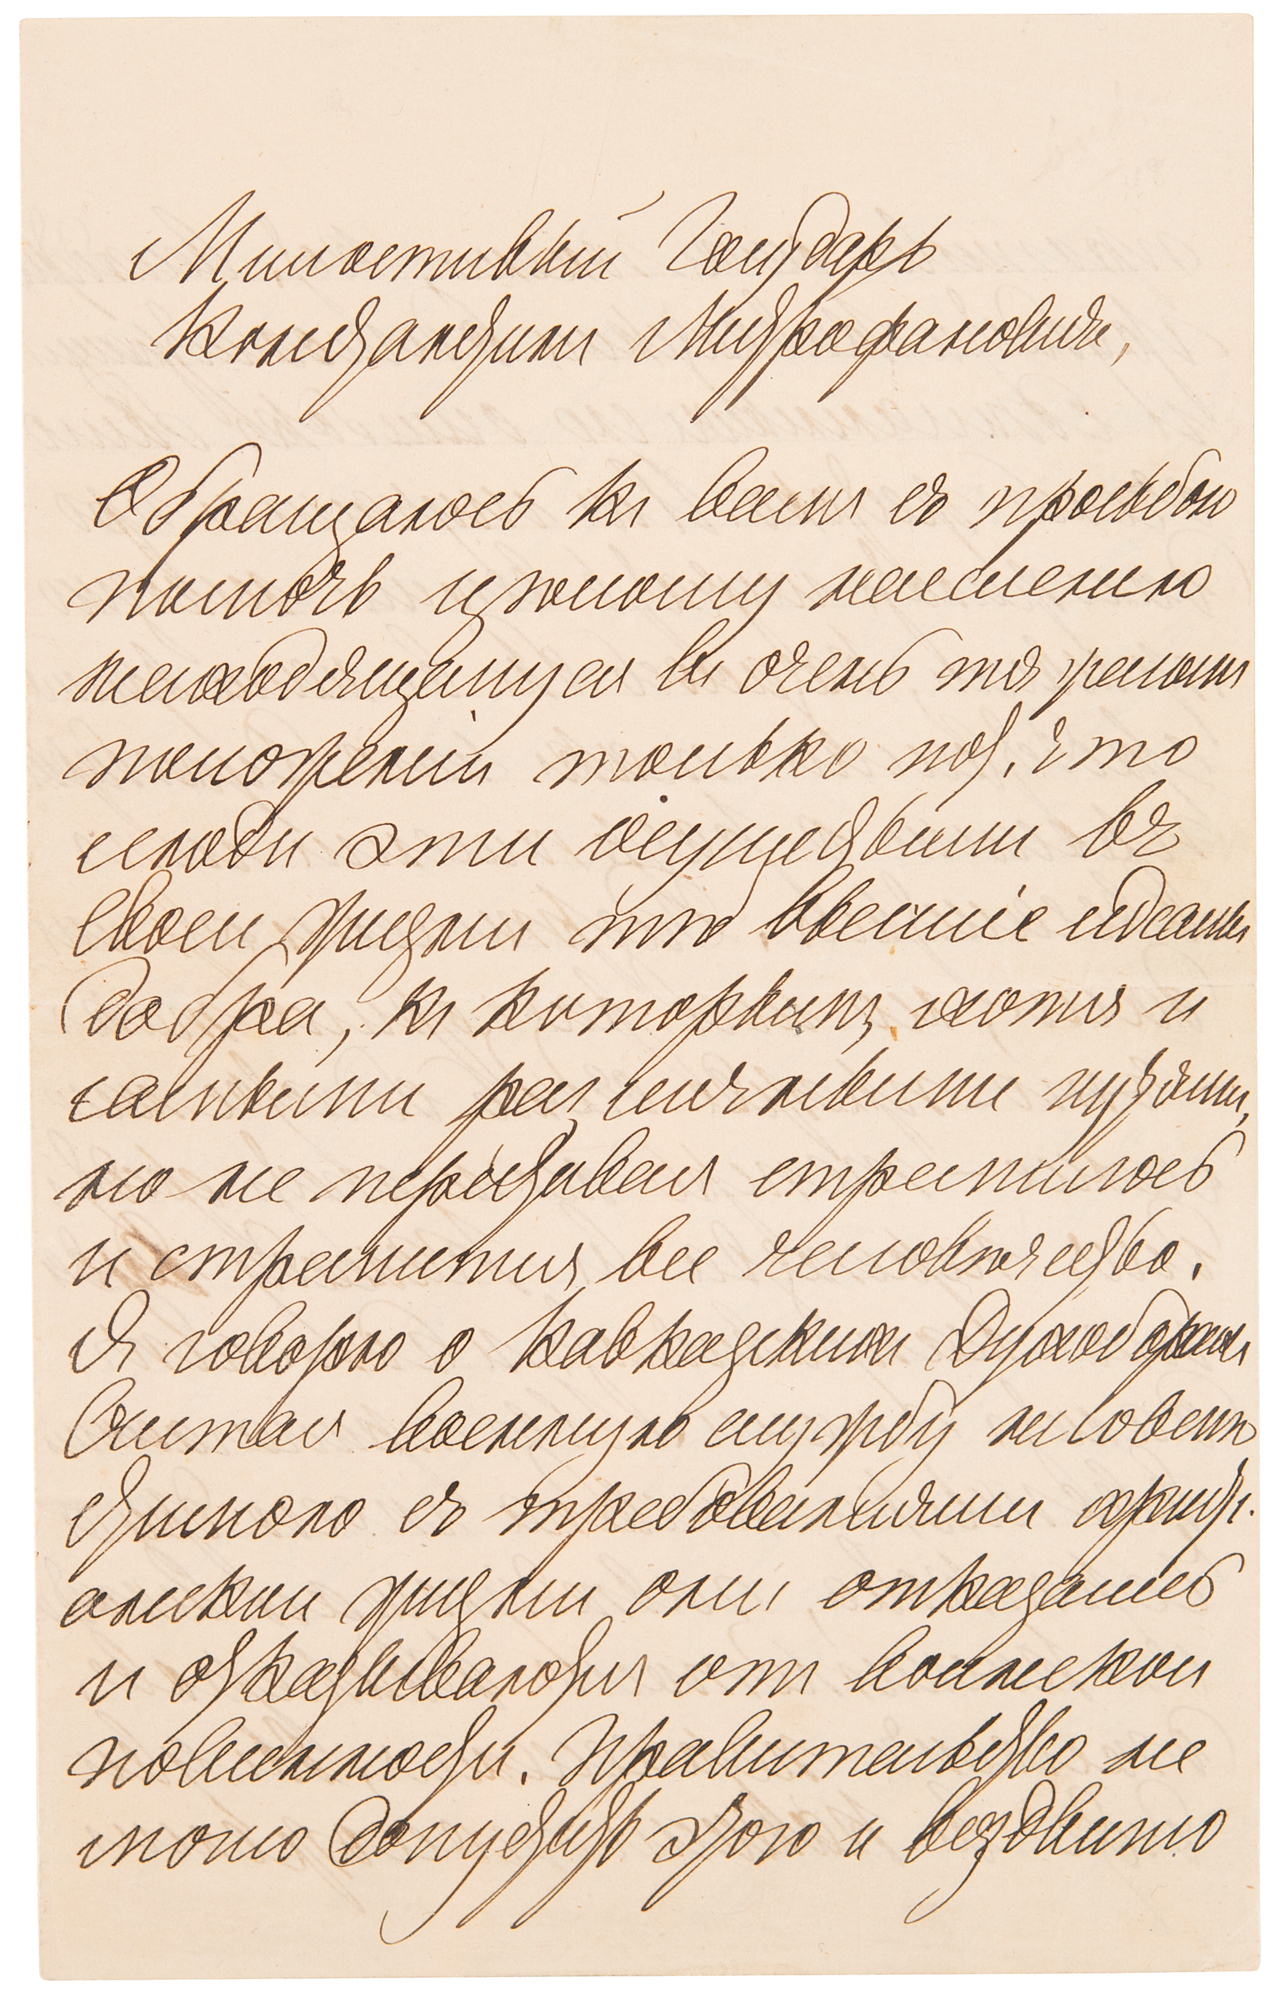 Милостивый Государь
Константинъ Митрофановичъ,
Обращаюсь къ вамъ съ просьбою
помочь цѣлому населенію
находящемуся въ очень тяжеломъ
положеніи только п. ч. что
люди эти осуществили въ
своей жизни тѣ вѣчные идеалы
добра, къ которымъ, хотя и
самыми различными путями,
но не переставая стремилось
и стремится все человѣчество.
Я говорю о Кавказскихъ Духоборахъ
Считая военную службу не совмѣ
стимою съ требованіями христі
анской жизни они отказались
и отказываются отъ воинской
повинности. Правительство не
могло допустить этого и воздвигло